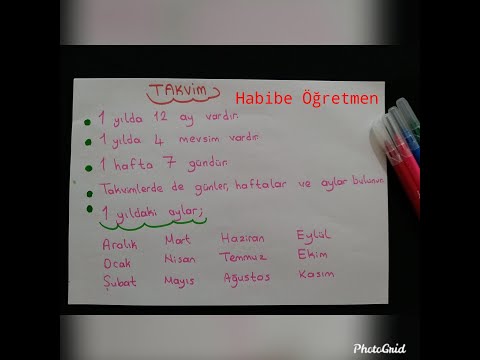 TAKVİM
Habibe Öğretmen
1 yılda 12 ay vardır.
1 yılda 4 mevsim vardır.
1 hafta 7 gündür.
Takvimlerde de günler, haftalar ve aylar bulunur.
1 yıldaki aylar;
Aralık Mart Haziran Eylül
Ocak Nisan Temmuz Ekim
Şubat Mayıs Ağustos Kasım
PhotoGrid